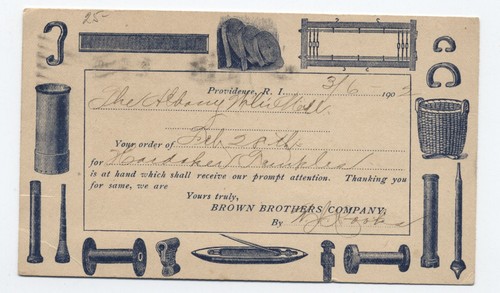 25-
Providence, R. I. 3/6- 1902
The Albany
Your order of Feb 28th
for
is at hand which shall receive our prompt attention. Thanking you
for same, we are
Yours truly,
BROWN BROTHERS COMPANY,
By